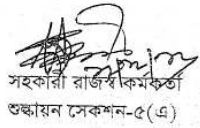 সহকারী রাজস্ব কর্মকর্তা
শুল্কায়ন সেকশন-৫(এ)